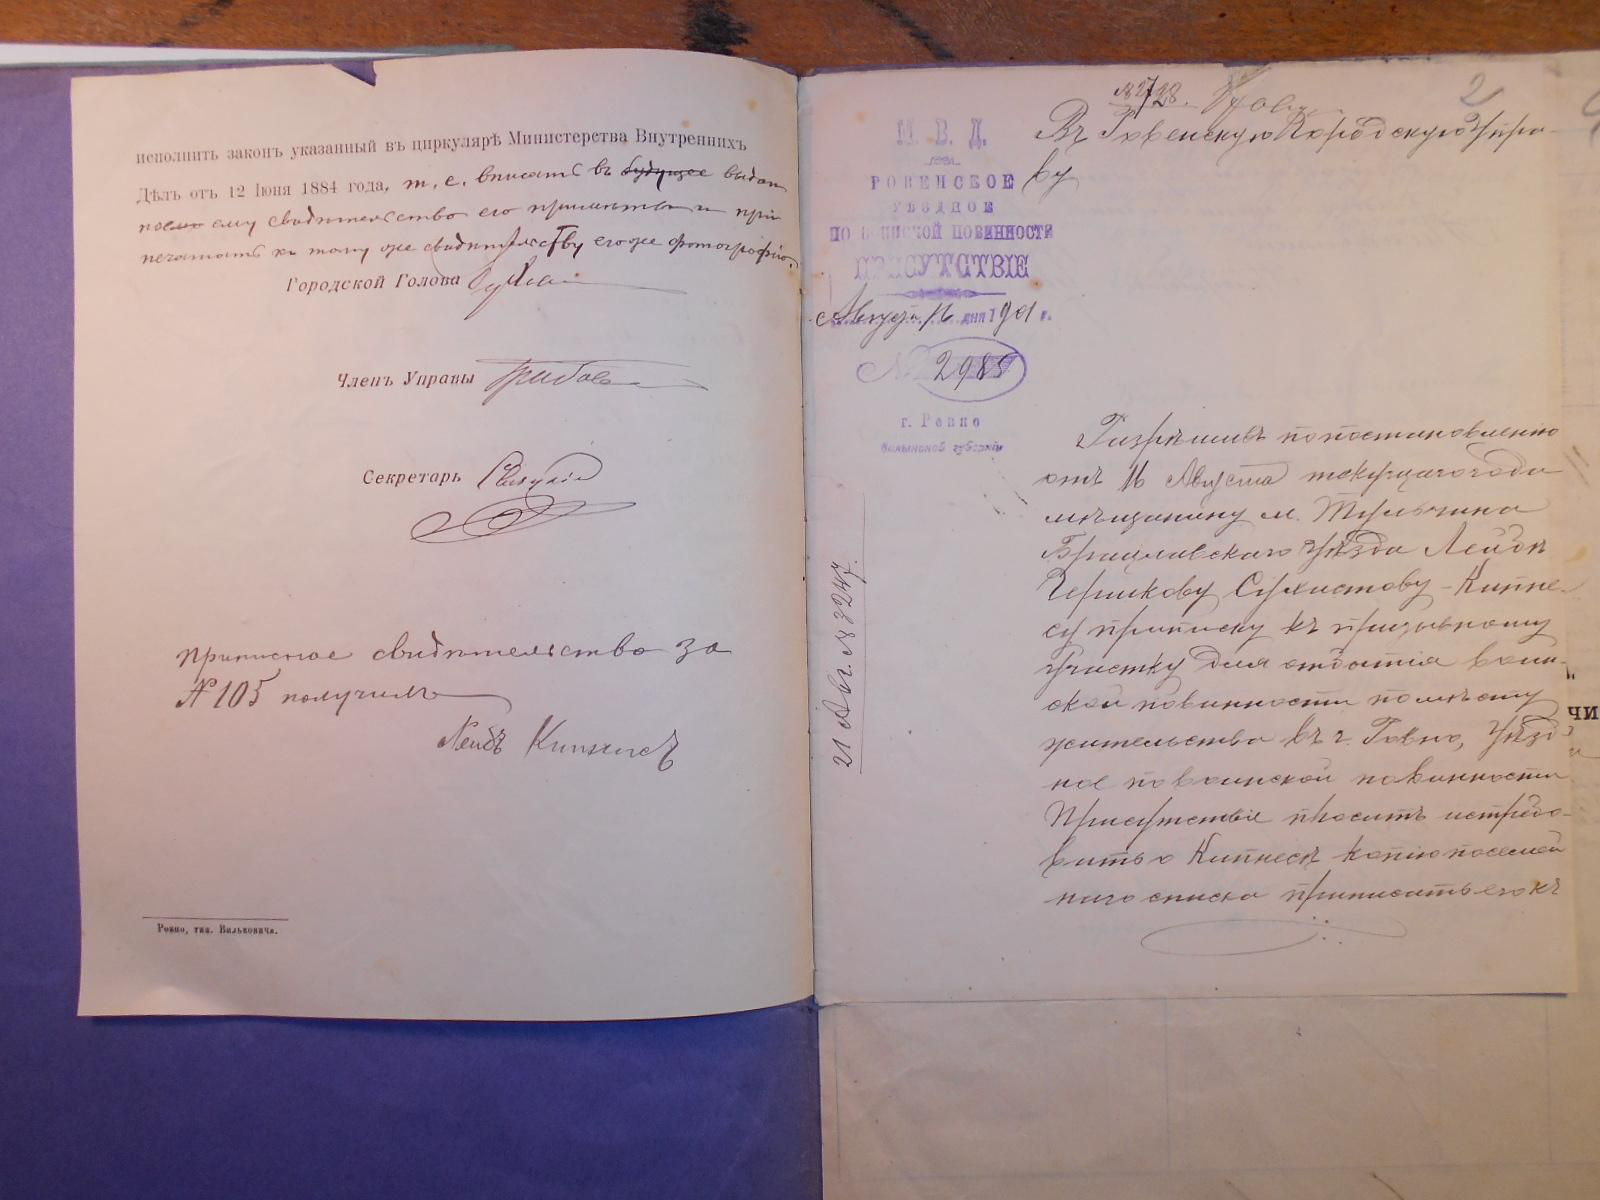 исполнить законъ указанный въ циркулярѣ Министерства Внутреннихъ
Дѣлъ отъ 12 Іюня 1884 года, т. е. вписать въ будущее выдан
ное ему свидѣтельство его примѣты и при
печатать къ тому же свидѣтельству его же фотографію.
Городской Голова
Членъ Управы
Секретарь
Приписное свидѣтельство за
№ 105 получилъ
Лейбъ Кипнисъ
Ровно, тип. Вильковича.
2
№ 2728.
Въ Ровенскую Городскую Упра-
ву
М. В. Д.
РОВЕНСКОЕ
УѢЗДНОЕ
ПО ВОИНСКОЙ ПОВИННОСТИ
ПРИСУТСТВІЕ
Августа 16 дня 1901 г.
№ 2985
г. Ровно
Волынской губерніи
21 Авг. № 3247.
Разрѣшивъ по постановленію
отъ 16 Августа текущаго года
мѣщанину м. Тульчина
Брацлавскаго Уѣзда Лейбѣ
Гершкову Кипне-
су приписку къ призывному
участку для отбытія воин-
ской повинности по мѣсту
жительства въ г. Ровно, Уѣзд-
ное по воинской повинности
Присутствіе проситъ истребо-
вать о Кипнесѣ копію посемей
наго списка приписать его къ
ЧИ